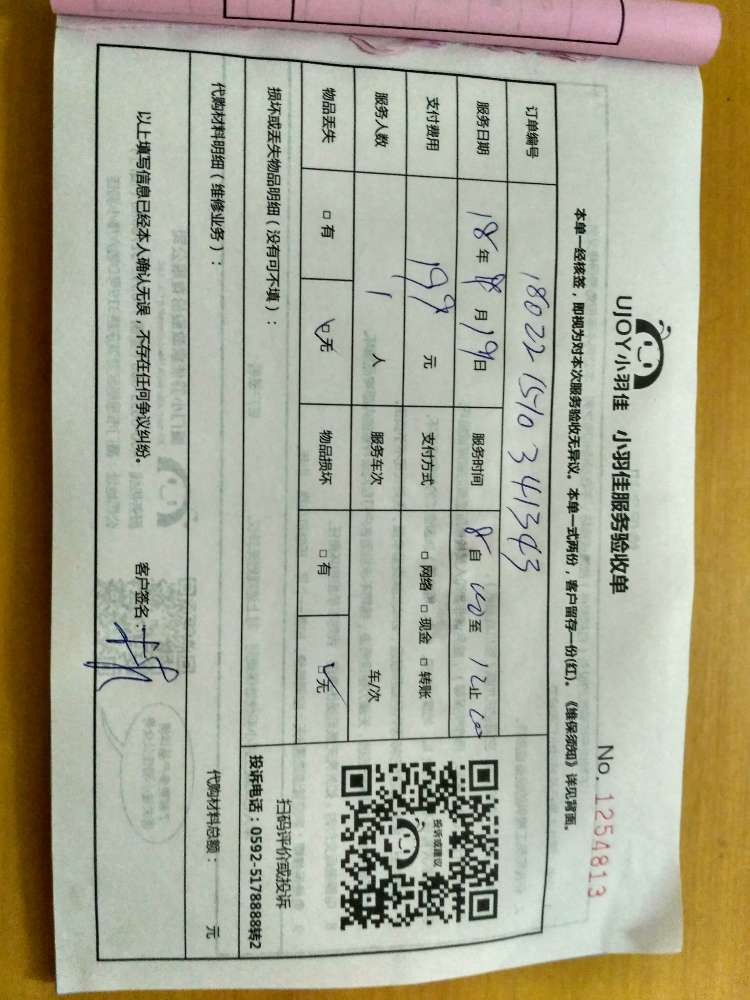 UJOY小羽佳 小羽佳服务验收单
No. 1254813
本单一经核签，即视为对本次服务验收无异议。本单一式两份，客户留存一份(红)。《维保须知》详见背面。
订单编号 180221540341343
服务日期 18年8月19日 服务时间 8自00至12止00
支付费用 199元 支付方式 □网络 □现金 □转账
服务人数 1人 服务车次 车/次
物品丢失 □有 □无 物品损坏 □有 □无
投诉或建议
扫码评价或投诉
投诉电话：0592-5178888转2
损坏或丢失物品明细（没有可不填）：
代购材料明细（维修业务）： 代购材料总额： 元
以上填写信息已经本人确认无误，不存在任何争议纠纷。 客户签名：